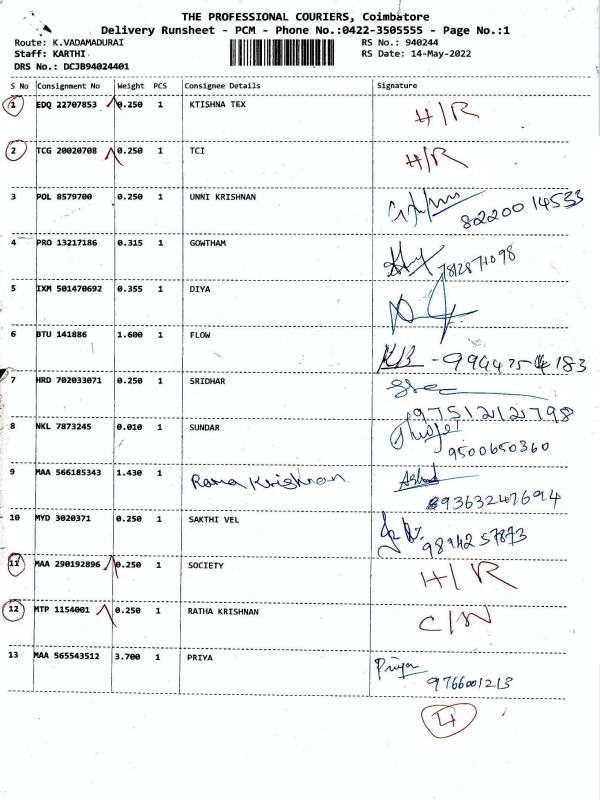 THE PROFESSIONAL COURIERS, Coimbatore
Delivery Runsheet - PCM - Phone No.:0422-3505555 - Page No.:1
Route: K.VADAMADURAI RS No.: 940244
Staff: KARTHI RS Date: 14-May-2022
DRS No.: DCJB94024401
S No Consignment No Weight PCS Consignee Details Signature
1 EDQ 22707853 0.250 1 KTISHNA TEX H/R
2 TCG 20020708 0.250 1 TCI H/R
3 POL 8579700 0.250 1 UNNI KRISHNAN
8220014533
4 PRO 13217186 0.315 1 GOWTHAM
5 IXM 501470692 0.355 1 DIYA
6 BTU 141886 1.600 1 FLOW
7 HRD 702033071 0.250 1 SRIDHAR
8 NKL 7873245 0.010 1 SUNDAR
9500650360
9 MAA 566185343 1.430 1 Rama Krishnan
10 MYD 3020371 0.250 1 SAKTHI VEL
11 MAA 290192896 0.250 1 SOCIETY H/R
12 MTP 1154001 0.250 1 RATHA KRISHNAN C/N
13 MAA 565543512 3.700 1 PRIYA Priya
9766001213
4